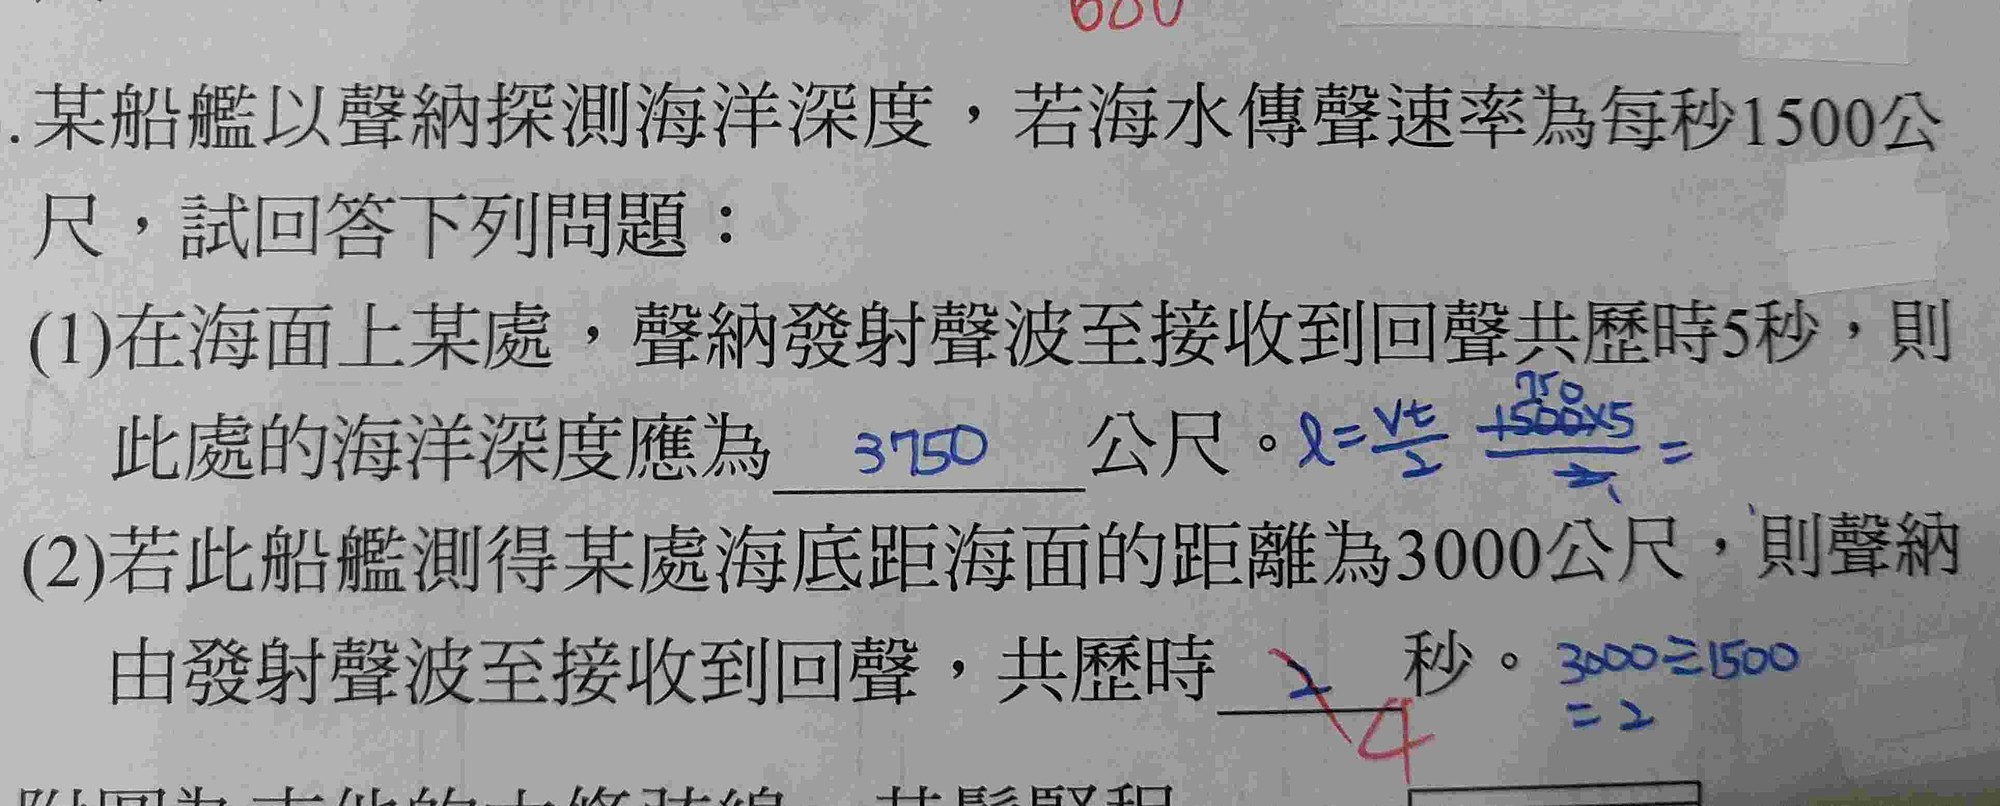 680
.某船艦以聲納探測海洋深度，若海水傳聲速率為每秒1500公
尺，試回答下列問題：
(1)在海面上某處，聲納發射聲波至接收到回聲共歷時5秒，則
此處的海洋深度應為 3750 公尺。l=vt/2 750 1500×5/2 =
(2)若此船艦測得某處海底距海面的距離為3000公尺，則聲納
由發射聲波至接收到回聲，共歷時 2 秒。3000÷1500
4 =2